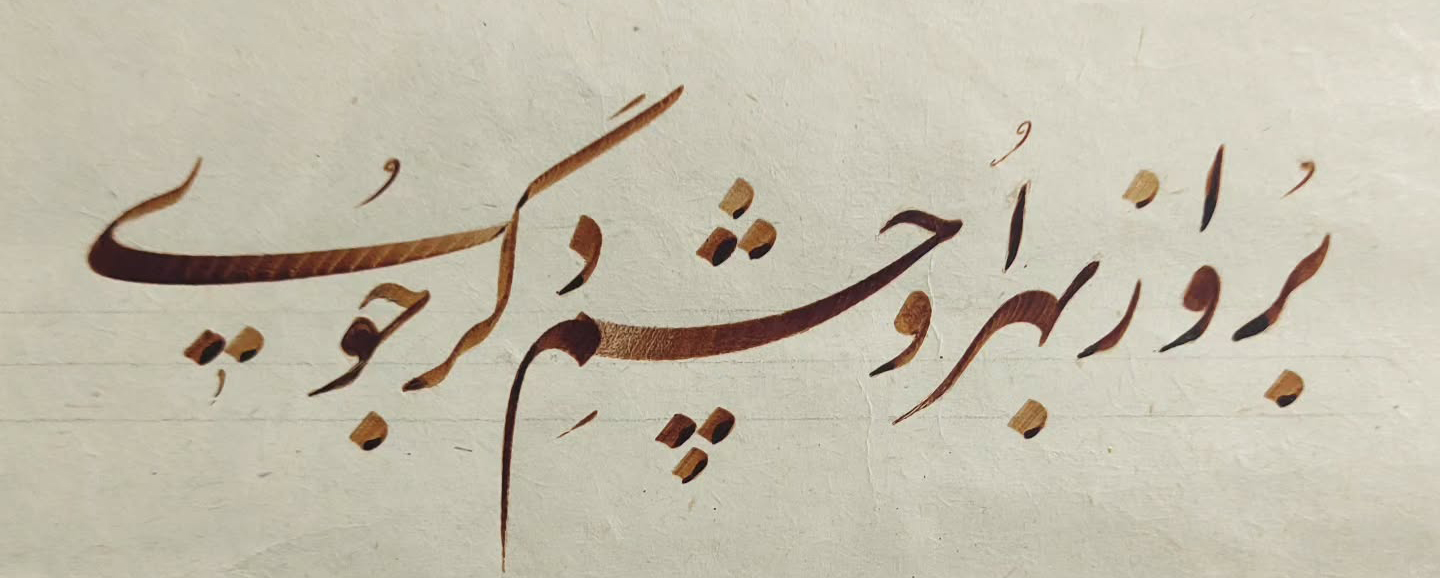 برو از بهر او چشم دگر جوی